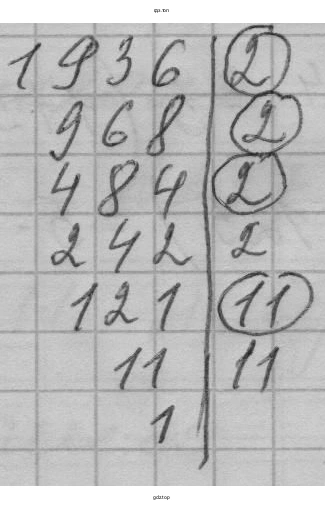 gdz.top
1936 | 2
968 | 2
484 | 2
242 | 2
121 | 11
11 | 11
1 |
gdz.top